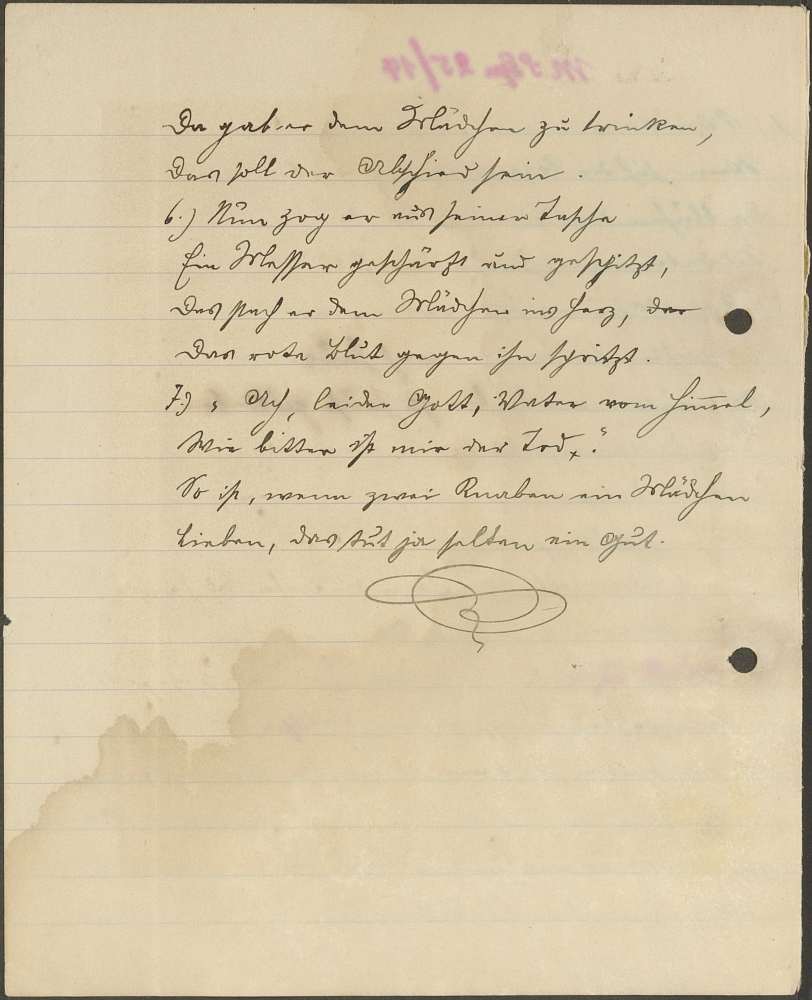 Da gab er dem Mädchen zu trinken,
Das soll der Abschied sein.
6.) Nun zog er aus seiner Tasche
Ein Messer geschärft und gespitzt,
Das stach er dem Mädchen ins Herz, der
Das rote Blut gegen ihn spritzt.
7.) „Ach, leider Gott, Vater vom Himmel,
Wie bitter ist mir der Tod."
So ist, wenn zwei Knaben ein Mädchen
Lieben, das tut ja selten ein Gut.